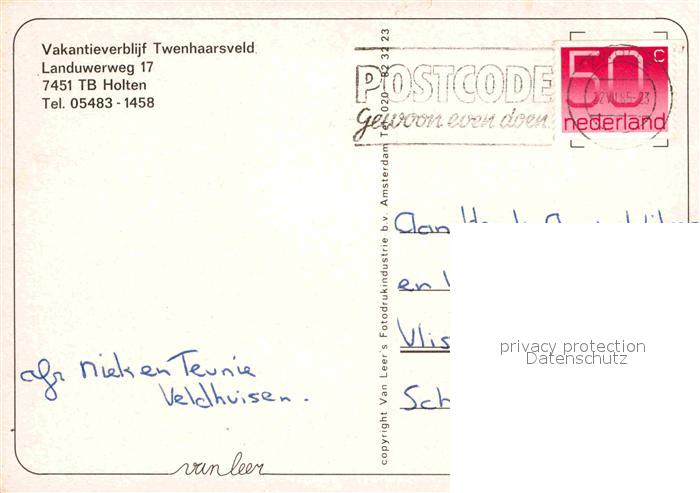 Vakantieverblijf Twenhaarsveld
Landuwerweg 17
7451 TB Holten
Tel. 05483-1458
POSTCODE
Gewoon even doen.
50 c
nederland
copyright Van Leer's Fotodrukindustrie b.v. Amsterdam Tel. 020 - 82 32 23
Aan
en
Vlis
Sch
privacy protection
Datenschutz
afz Niek en Teunie
Veldhuisen.
van leer